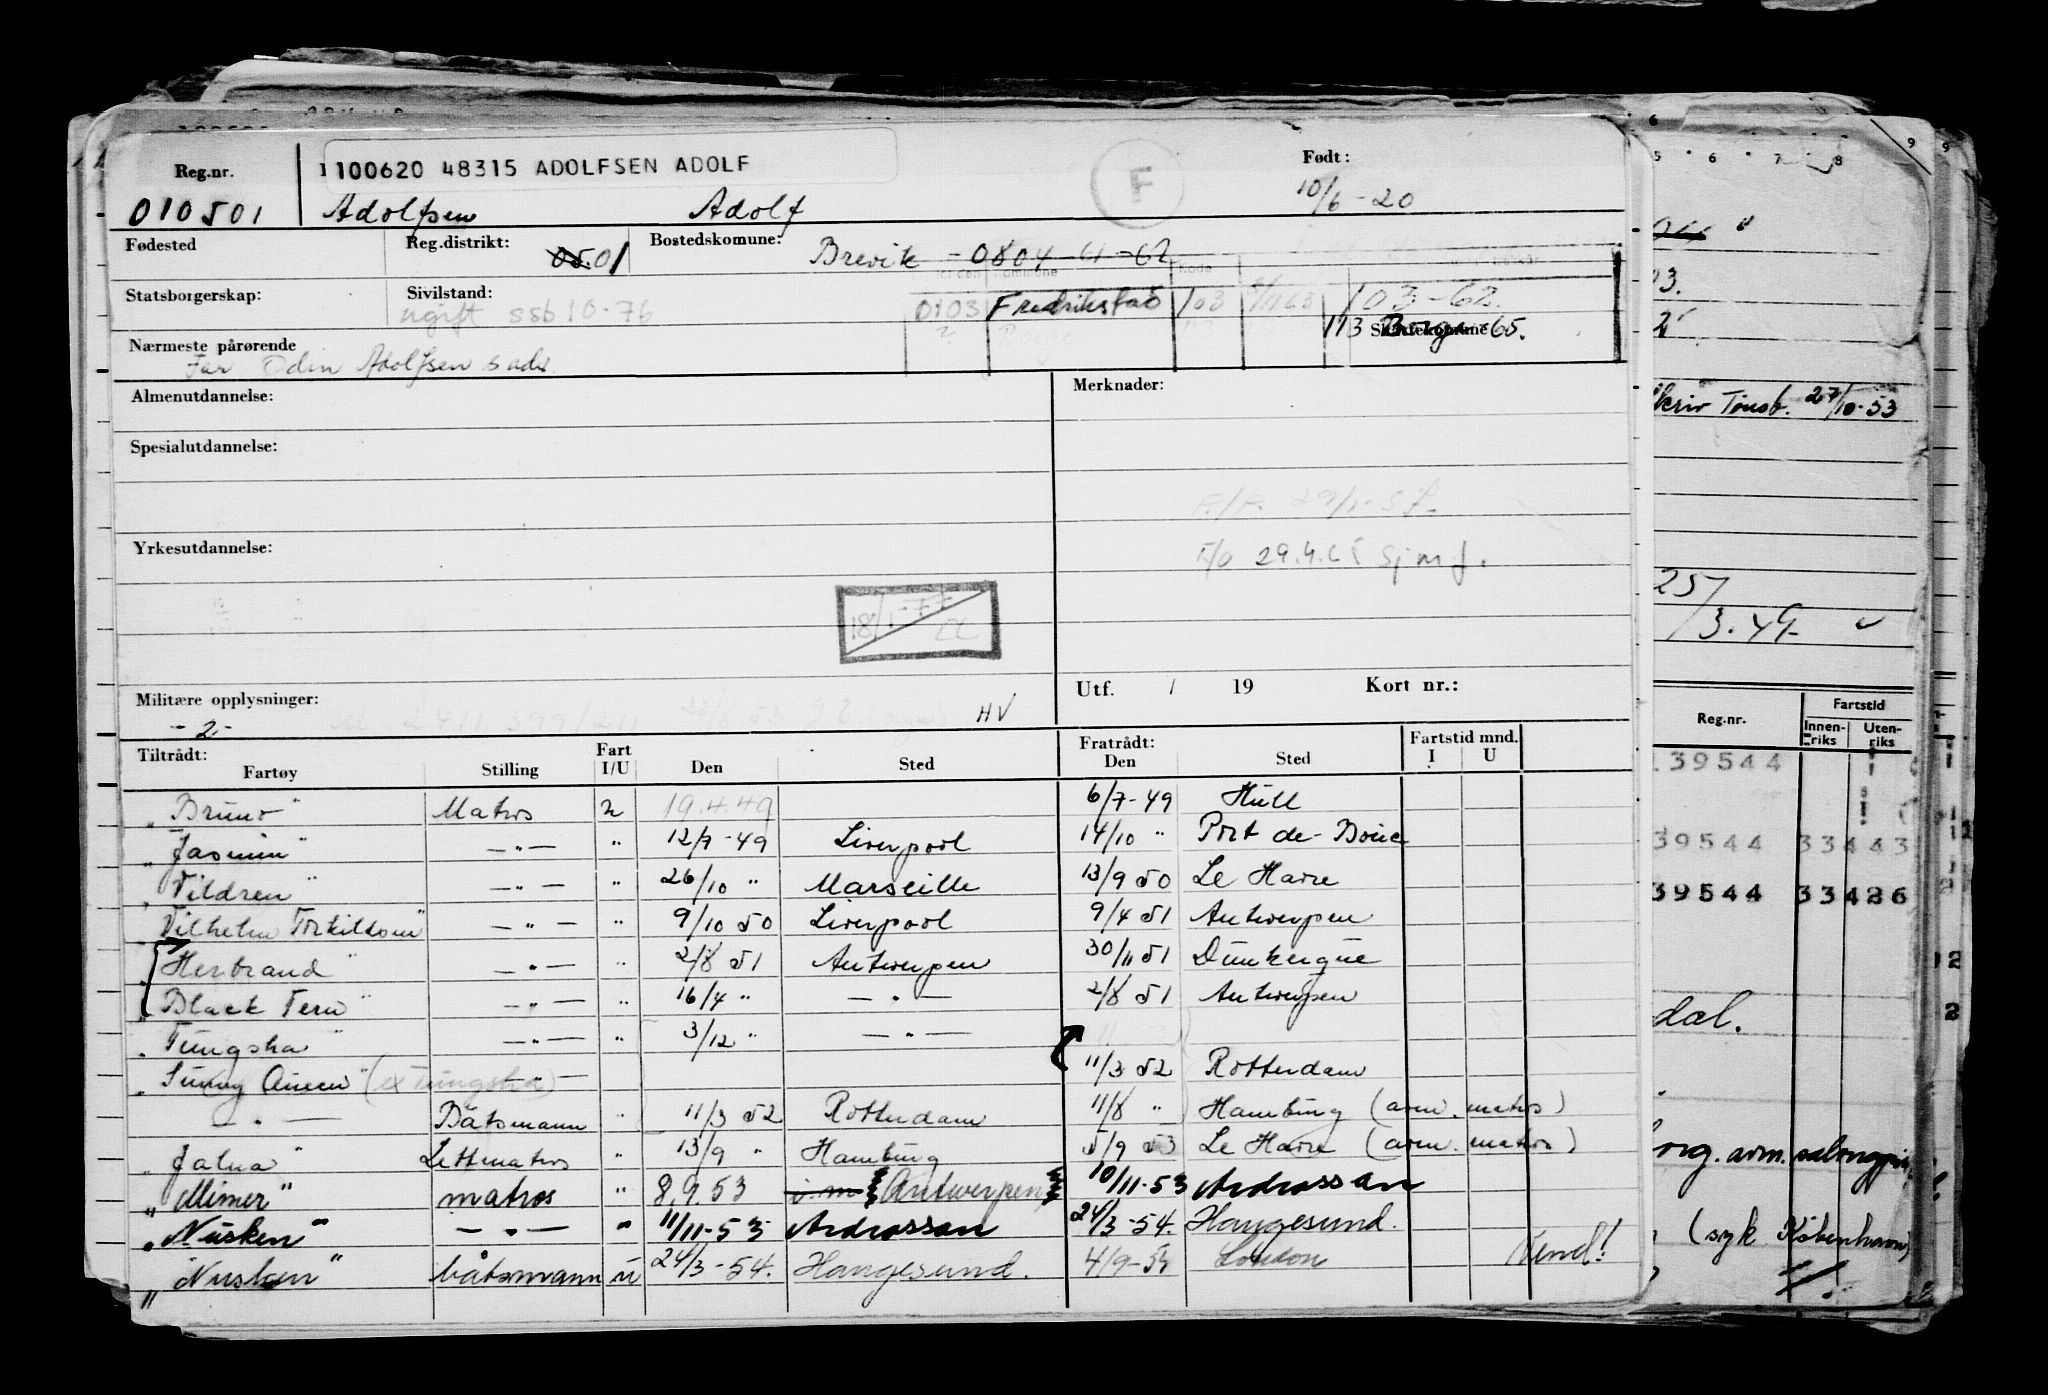 Reg.nr. 100620 48315 ADOLFSEN ADOLF F Født:
010501 Adolfsen Adolf 10/6-20
Fødested Reg.distrikt: 05.01 Bostedskomune: Brevik - 0804-61-62
Statsborgerskap: Sivilstand: ugift ssb 10-76 0103 Fredrikstad 103 103-62.
113 Borge 65.
Nærmeste pårørende
Far Odin Adolfsen s adr.
Almenutdannelse: Merknader:
Spesialutdannelse:
F/P. 29/1-57.
Yrkesutdannelse: F/o 29.4.65 Sjmf.
18/1-77
Militære opplysninger: Utf. / 19 Kort nr.:
-2- HV
Tiltrådt: Fart Fratrådt: Fartstid mnd.
Fartøy Stilling I/U Den Sted Den Sted I U
"Bruno" Matros u 19.4.49 6/7-49 Hull
"Jasmin" -"- " 12/7-49 Liverpool 14/10 " Port de Bouc
"Vildren" -"- " 26/10 " Marseille 13/9 50 Le Havre
"Vilhelm Torkildsen" -"- " 9/10 50 Liverpool 9/4 51 Antwerpen
"Herbrand" -"- " 2/8 51 Antwerpen 30/11 51 Dunkerque
"Black Tern" -"- " 16/4 " -"- 2/8 51 Antwerpen
"Tungsha" -"- " 3/12 " -"-
"Sunny Queen" (ex Tungsha) -"- 11/3 52 Rotterdam
-"- Båtsmann " 11/3 52 Rotterdam 11/8 " Hamburg (avm. matros)
"Jalna" Lettmatros " 13/9 " Hamburg 5/9 53 Le Havre (avm. matros)
"Mimer" matros " 8.9.53 Antwerpen 10/11-53 Ardrossan
"Nusken" -"- " 11/11-53 Ardrossan 24/3-54. Haugesund.
"Nusken" båtsmann u 24/3-54. Haugesund. 4/9-54 London Vend!
5 6 7 8 9 9
03.
skriv Tønsb. 27/10-53
25/3.49
Reg.nr. Fartstid
Innen-riks Uten-riks
39544
39544 33443
39544 33426
dal.
(syk København)